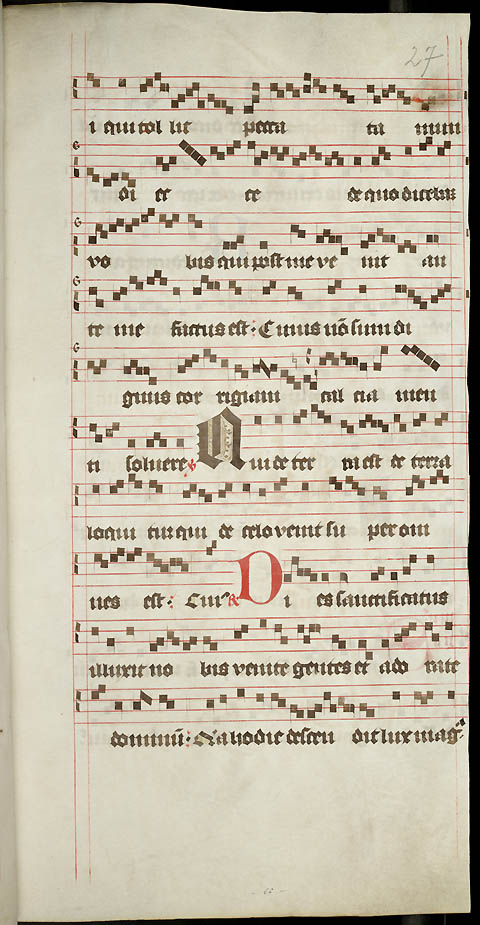 27
i qui tol lit pecca ta mun
di et ce ce de quo dicebam
vo bis qui post me ve nit an
te me factus est : Cuius nō sum di
gnus cor rigiam cal cia men
ti soluere ℣ Qui de ter ra est de terra
loqui tur qui de celo venit su per om
nes est : Cuiꝰ ℟ Di es sanctificatus
illuxit no bis venite gentes et ado rate
dominū : Quia hodie descen dit lux mag